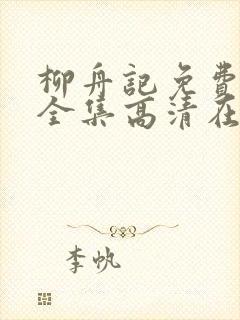 柳舟記免費
全集高清在
李帆